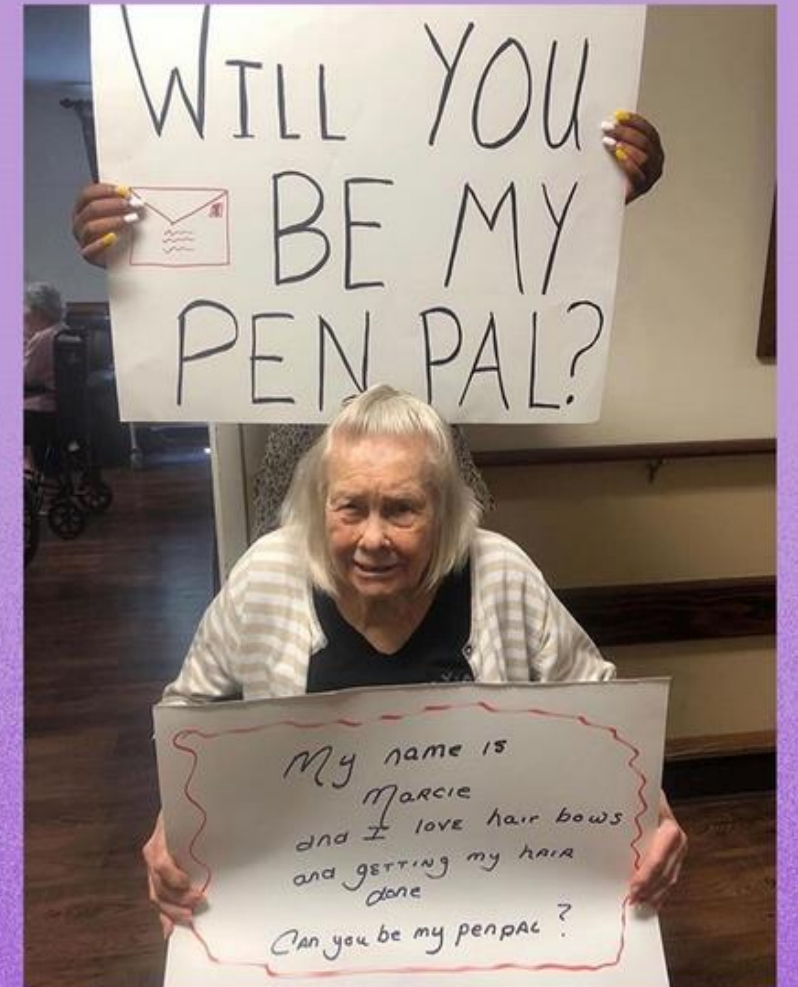 WILL YOU
BE MY
PEN PAL?
My name is
MARCIE
and I love hair bows
and getting my hair
done
Can you be my penpal?